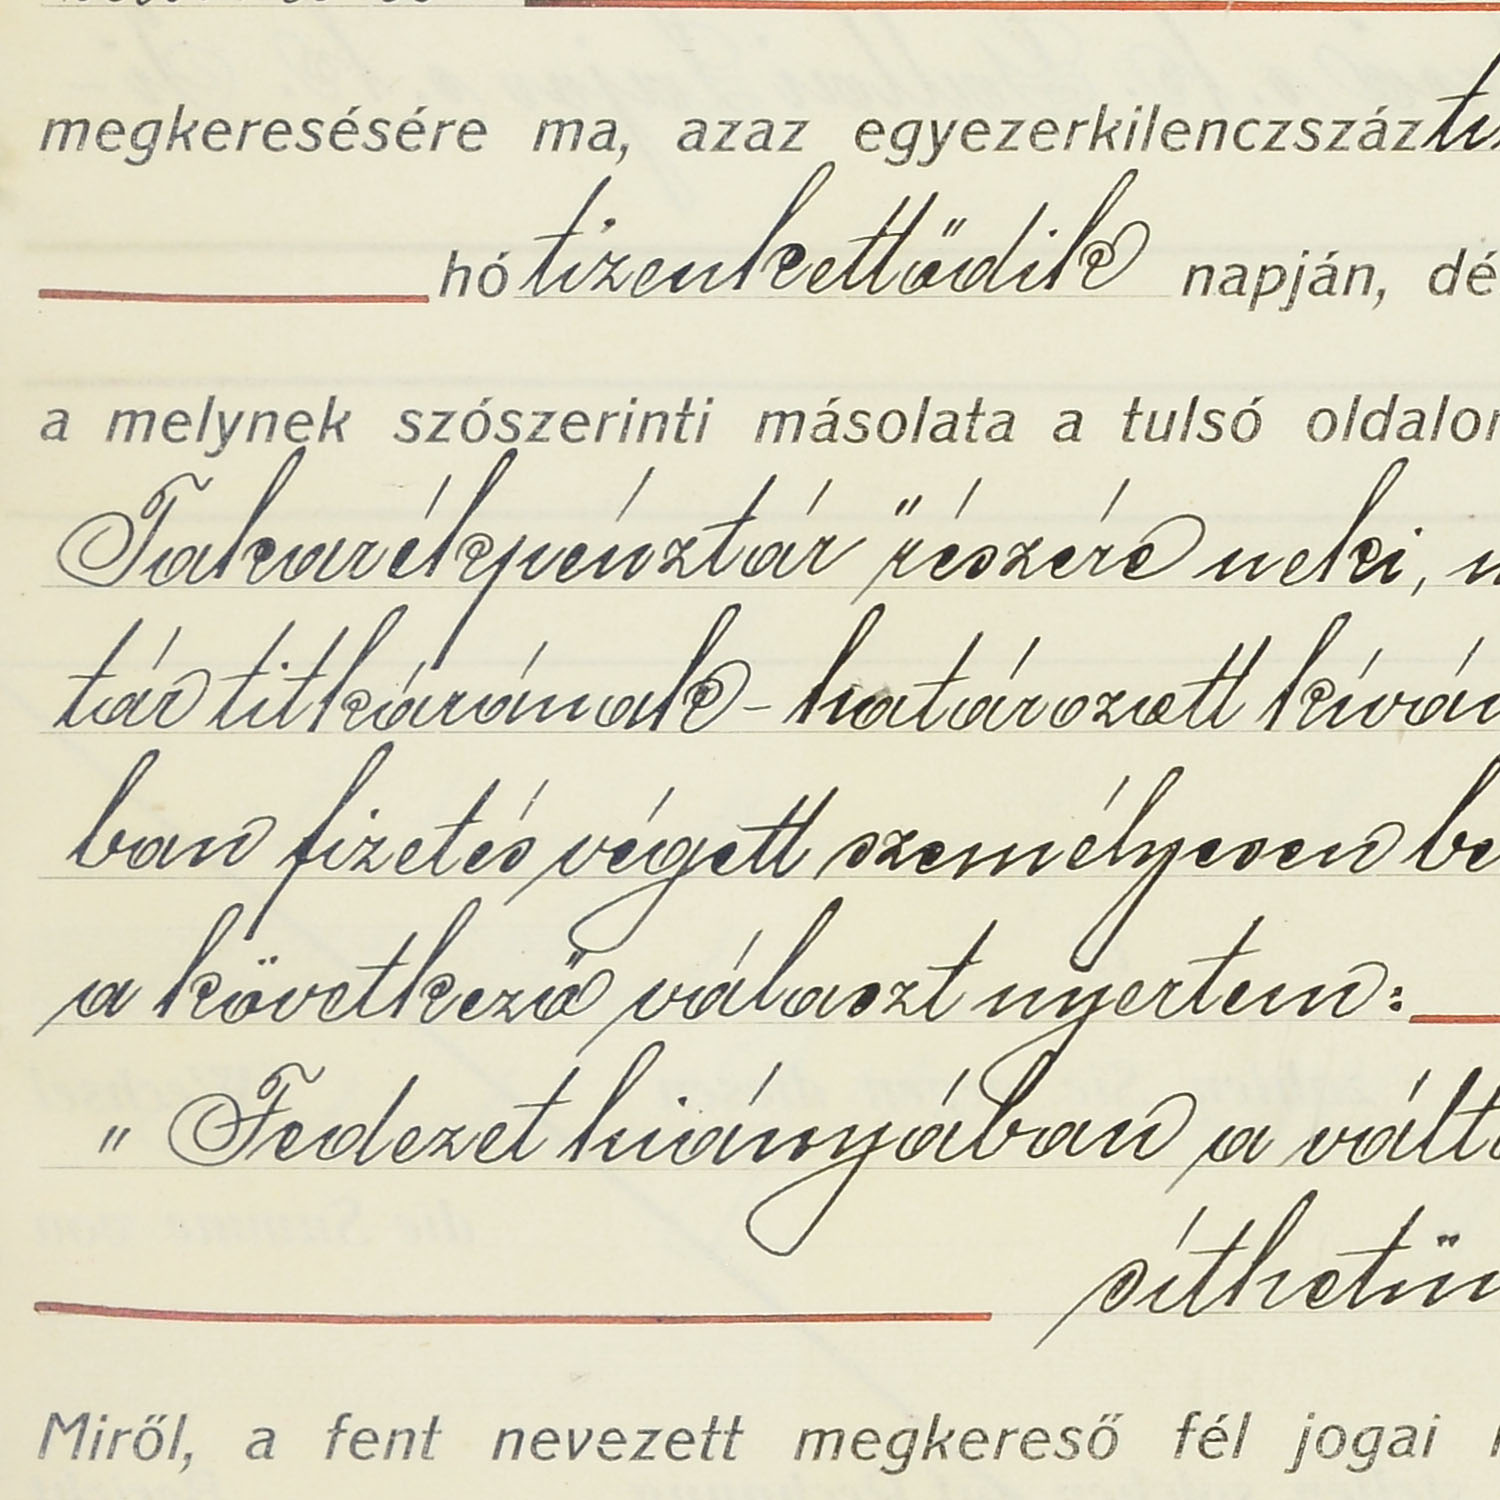 megkeresésére ma, azaz egyezerkilenczszáz
hó tizenkettödik napján, dé
a melynek szószerinti másolata a tulsó oldalon
Takarékpénztár" részére neki, 
tár titkárának - határozott kíván
ban fizetés végett személyesen be
a következö választ nyertem:
" Fedezet hiányában a vált
síthetü
Miről, a fent nevezett megkereső fél jogai